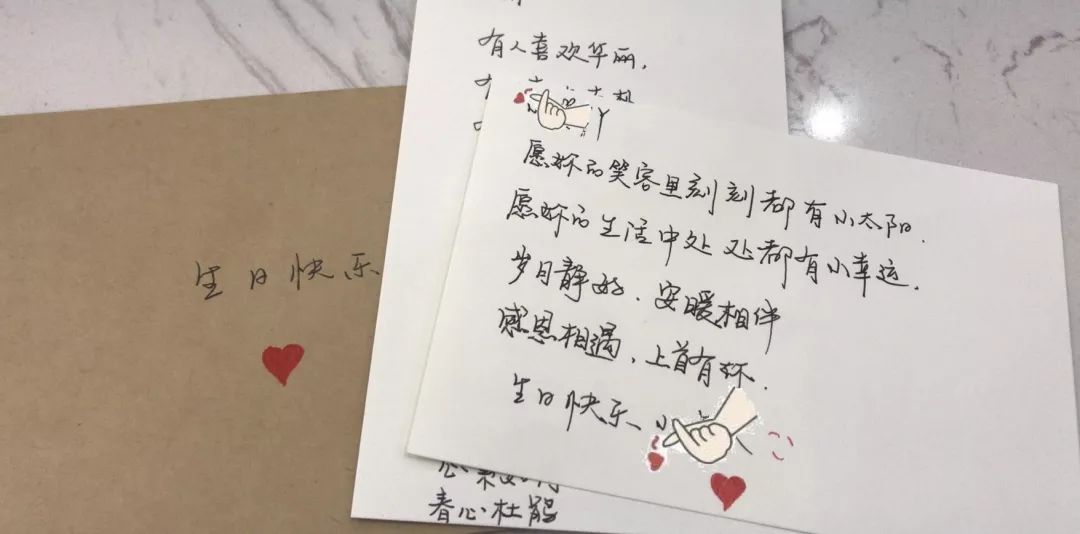 生日快乐
有人喜欢华丽,
愿妳的笑容里刻刻都有小太阳.
愿妳的生活中处处都有小幸运.
岁月静好、安暖相伴
感恩相遇、上首有妳.
生日快乐、小
春心杜鹃